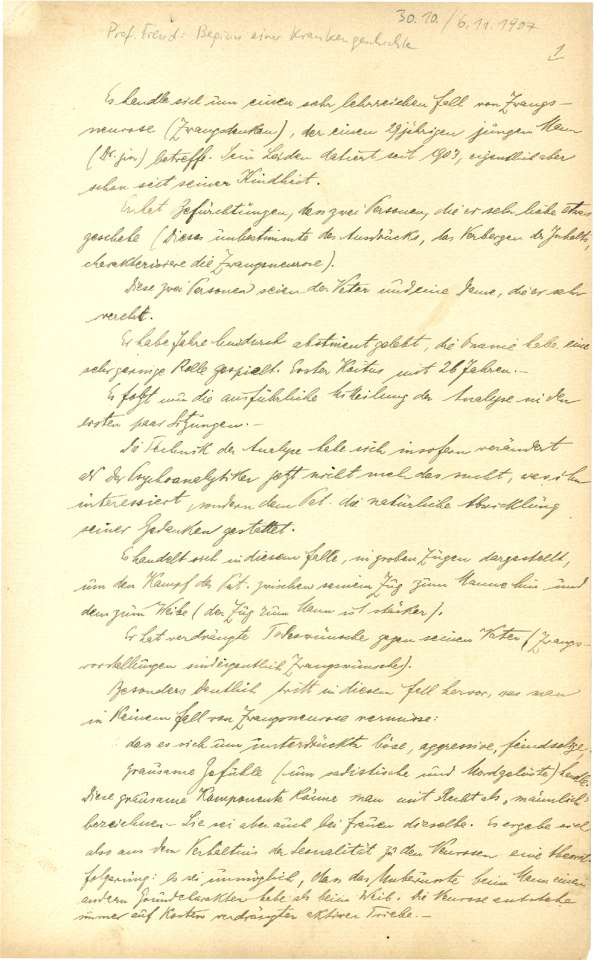 30.10./6.11.1907
Prof. Freud: Beginn einer Krankengeschichte
1
Es handle sich um einen sehr lehrreichen Fall von Zwangs-
neurose (Zwangsdenken), der einen 29jährigen jungen Mann
(Dr. jur.) betreffe. Sein Leiden datiert seit 1903, eigentlich aber
schon seit seiner Kindheit.
Er hat Befürchtungen, dass zwei Personen, die er sehr liebe etwas
geschehe (Dieses Unbestimmte des Ausdrucks, das Verbergen des Inhalts,
charakterisiere die Zwangsneurose).
Diese zwei Personen seien der Vater und eine Dame, die er sehr
verehrt.
Er habe Jahre hindurch abstinent gelebt, die Onanie habe eine
sehr geringe Rolle gespielt. Erster Koitus mit 26 Jahren.-
Es folgt nun die ausführliche Mitteilung der Analyse in den
ersten paar Sitzungen.-
Die Technik der Analyse habe sich insofern verändert
als der Psychoanalytiker jetzt nicht mehr das sucht, was ihn
interessiert, sondern dem Pat. die natürliche Abwicklung
seiner Gedanken gestattet.
Es handelt sich in diesem Falle, in groben Zügen dargestellt,
um den Kampf des Pat. zwischen seinem Zug zum Manne hin und
dem zum Weibe (der Zug zum Mann ist stärker).
Er hat verdrängte Todeswünsche gegen seinen Vater (Zwangs-
vorstellungen sind eigentlich Zwangswünsche).
Besonders deutlich tritt in diesem Fall hervor, was man
in keinem Fall von Zwangsneurose vermisse:
dass es sich um unterdrückte böse, aggressive, feindselige,
grausame Gefühle (um sadistische und Mordgelüste) handle.
Diese grausame Komponente könne man mit Recht als „männlich"
bezeichnen - Sie sei aber auch bei Frauen dieselbe. Es ergebe sich
also aus dem Verhältnis der Sexualität zu den Neurosen eine theoret.
Folgerung: es sei unmöglich, dass das Unbewusste beim Mann einen
andern Grundcharakter habe als beim Weib. Die Neurose entstehe
immer auf Kosten verdrängter aktiver Triebe.-